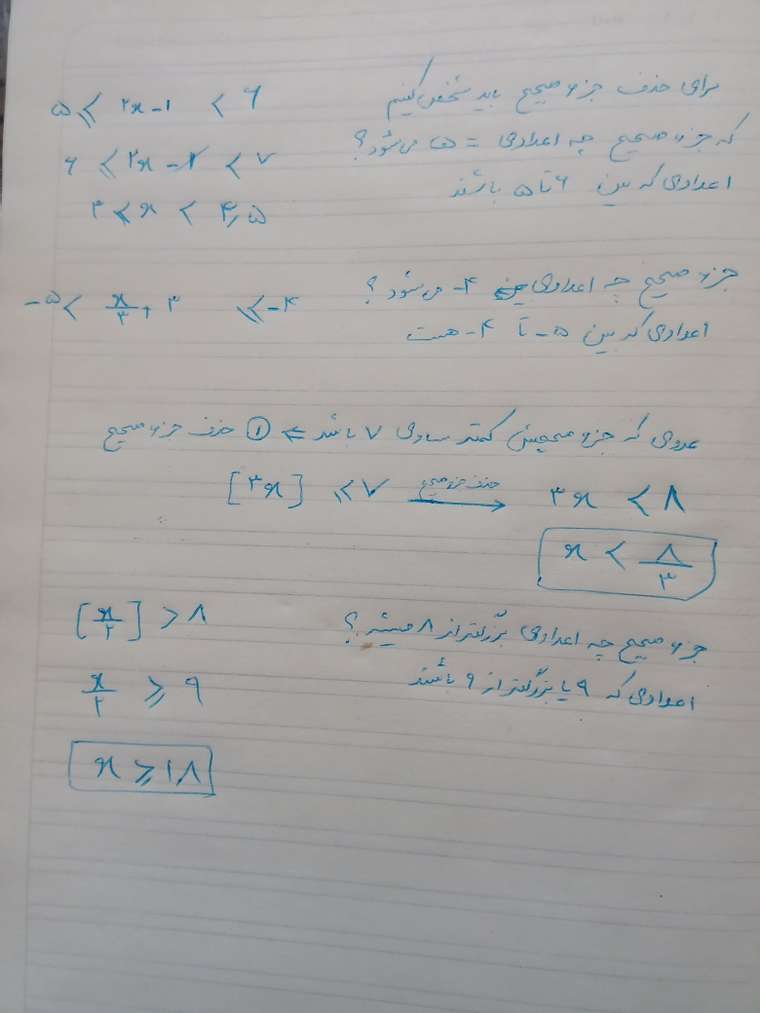 برای حذف جزء صحیح باید مشخص کنیم
۵ ⩽ ۲x-۱ < ۶
که جزء صحیح چه اعدادی = ۵ می شود؟
۶ ⩽ ۲x-̸۱̸ < ۷
اعدادی که بین ۶ تا ۵ باشند
۳ ⩽ x < ۳٫۵
جزء صحیح چه اعدادی -۴ می شود؟
-۵ < x/۳ + ۳ ⩽ -۴
اعدادی که بین -۵ تا -۴ هست
عددی که جزء صحیحش کمتر مساوی ۷ باشد ⇐ ① حذف جزء صحیح
[۳x] ⩽ ۷ حذف جزء صحیح → ۳x < ۸
x < ۸/۳
جزء صحیح چه اعدادی بزرگتر از ۸ میشه؟
[x/۲] > ۸
اعدادی که ۹ یا بزرگتر از ۹ باشند
x/۲ ⩾ ۹
x ⩾ ۱۸